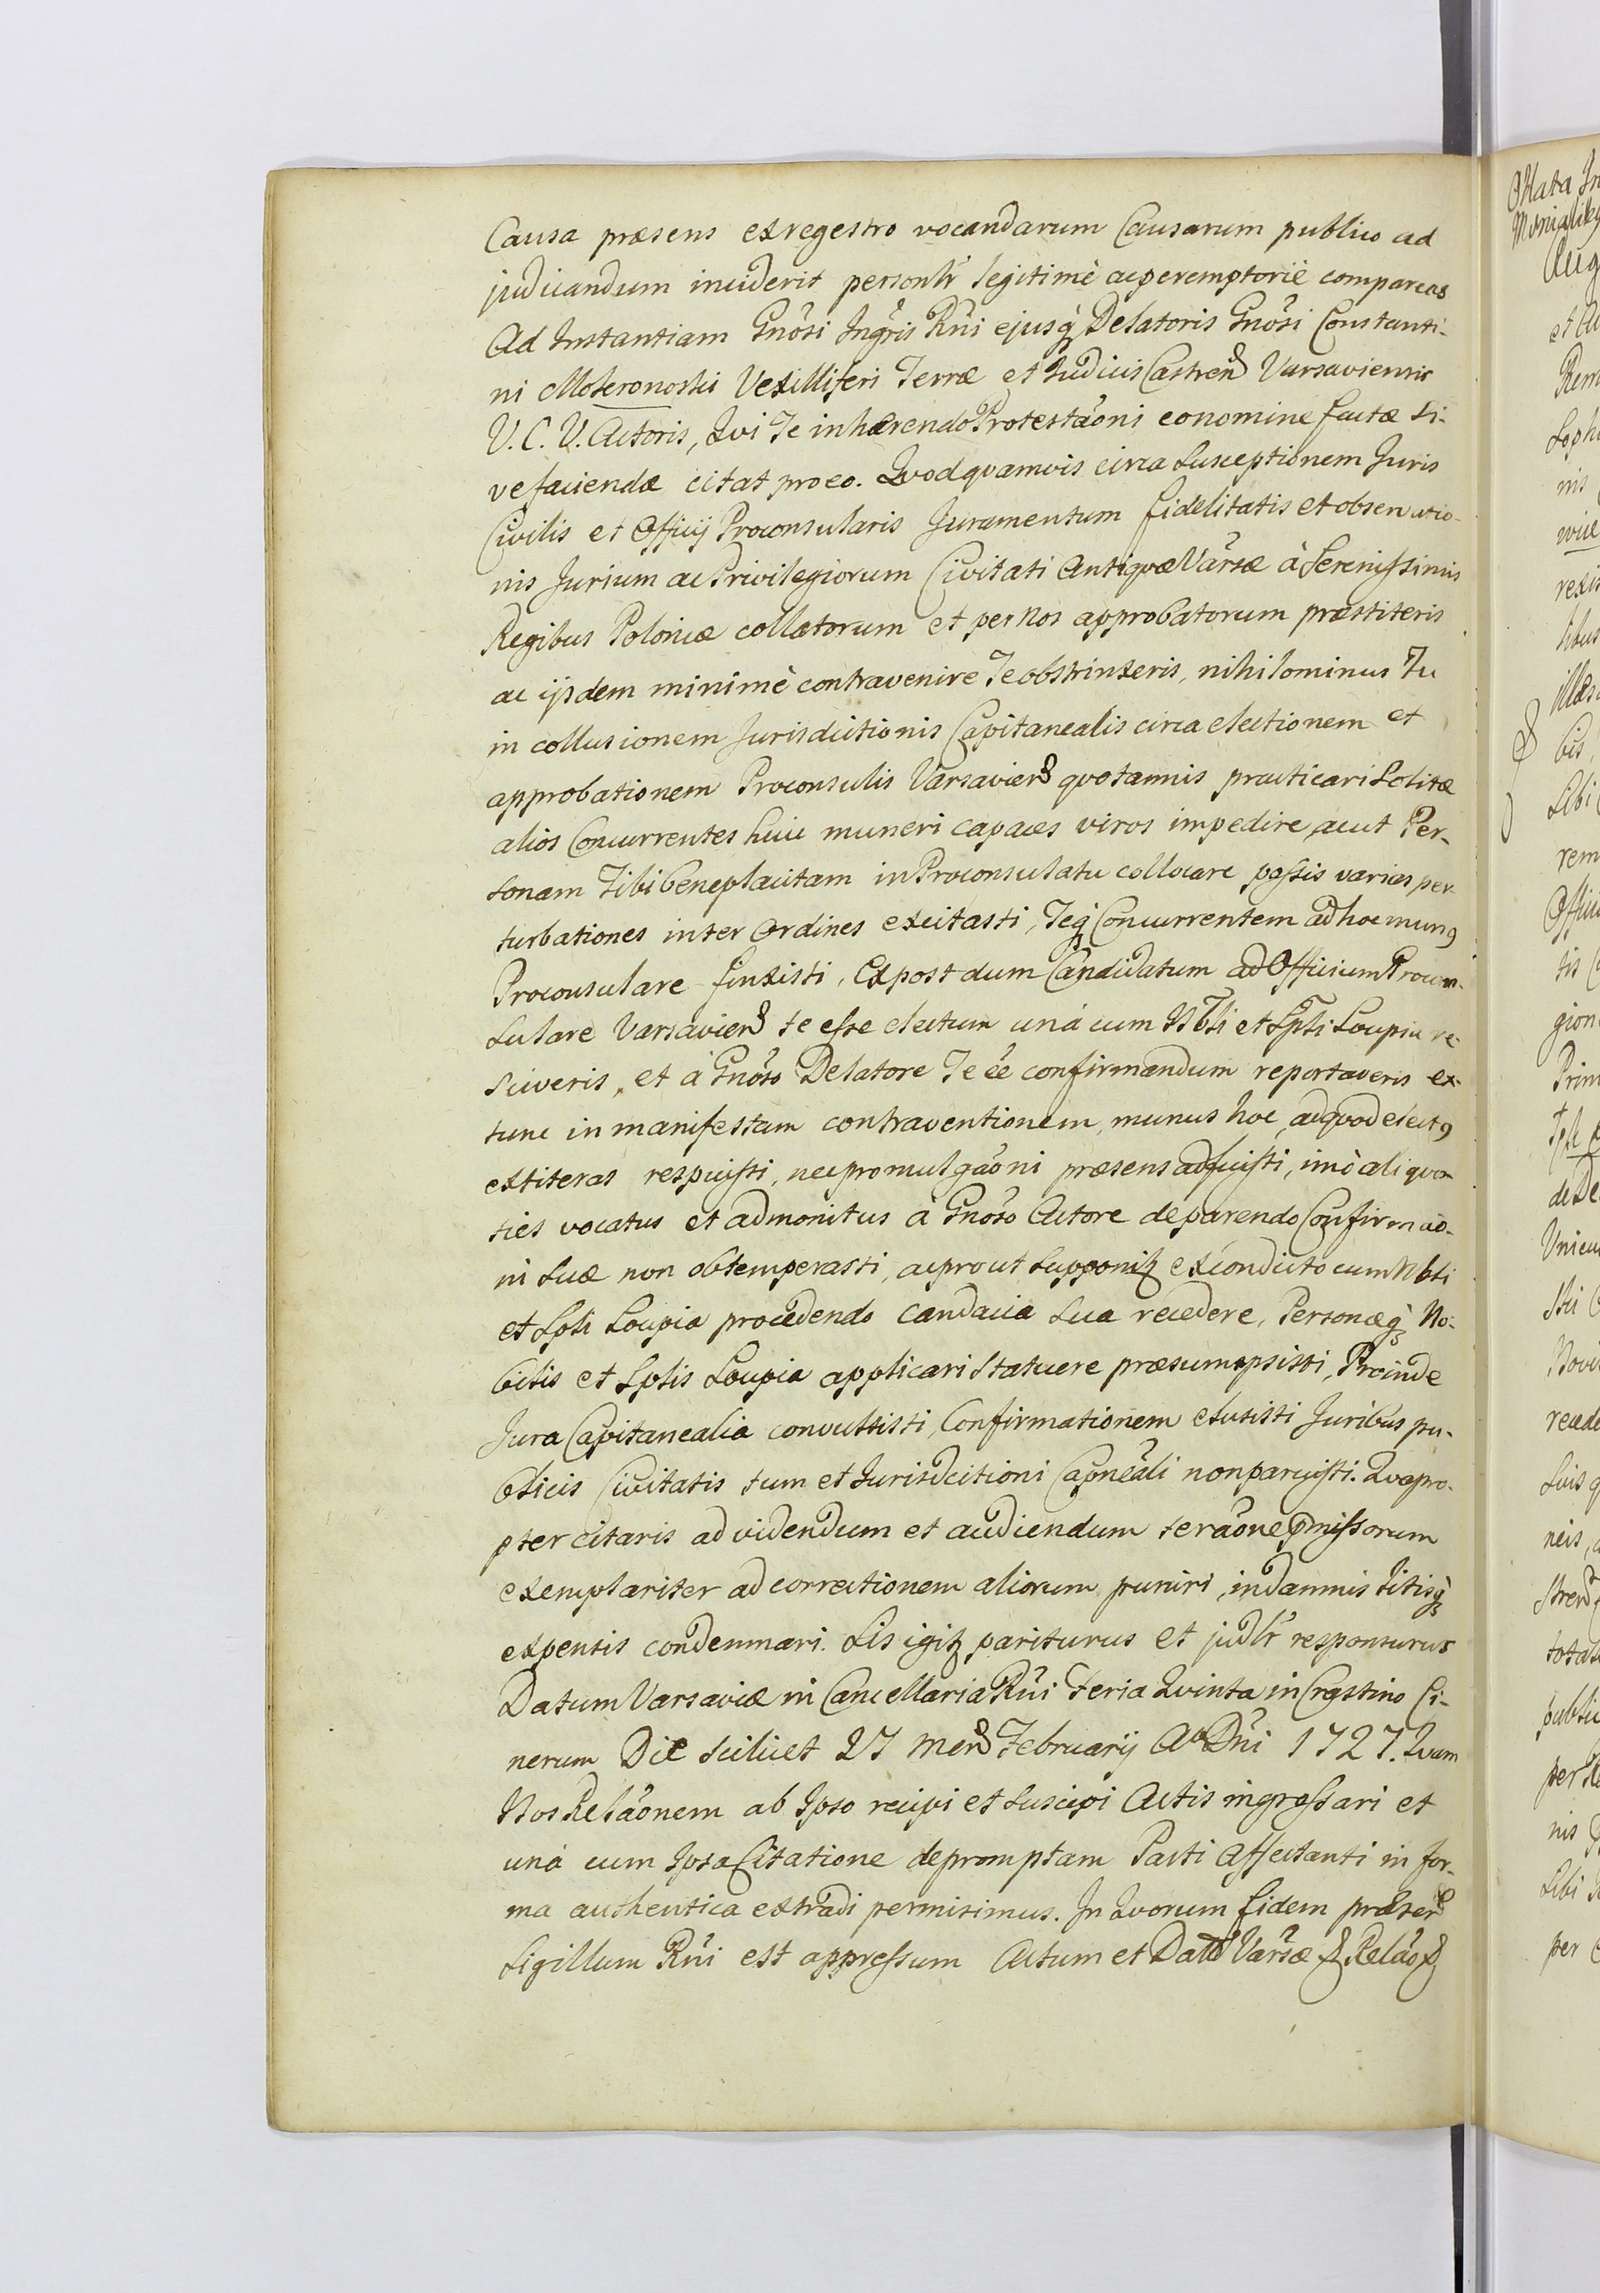 Causa præsens ex regestro vocandarum Causarum publico ad
judicandum inciderit personłr legitimè ac peremptoriè compareas
Ad Instantiam Gnősi Ingřis Rňi ejusq̀ Delatoris Gnősi Constanti-
ni Mokronoski Vexilliferi Terræ et Judicis Castren Varsaviensis
V. C. V. Actoris, Qvi Te inhærendo Protestaőni eo nomine factæ si-
ve faciendæ citat pro eo. Qvod qvamvis circa Susceptionem Juris
Civilis et Officij Proconsularis Juramentum fidelitatis et observatio-
nis Jurium ac Privilegiorum Civitati Antiqvæ Varsæ à Serenissimis
Regibus Poloniæ collatorum et per Nos approbatorum præstiteris
ac ijsdem minimè contravenire Te obstrinxeris, nihilominus Tu
in collusionem Jurisdictionis Capitanealis circa electionem et
approbationem Proconsulis Varsavien qvotannis practicari Solitæ
alios Concurrentes huic muneri capaces viros impedire, ac ut Per-
sonam Tibi beneplacitam in Proconsulatu collocare possis varias per-
turbationes inter Ordines excitasti, Teq̀ Concurrentem ad hoc munus
Proconsulare finxisti, Ex post dum Candidatum ad Officium Procon-
sulare Varsavien te esse electum unà cum Nbłi et Spłi Loupia re-
sciveris, et à Gnőso Delatore Te eė confirmandum reportaveris ex-
tunc in manifestam contraventionem, munus hoc, ad qvod electus
extiteras respuisti, nec promulgaőni præsens adfuisti, imò aliqvo-
ties vocatus et admonitus à Gnőso Actore de parendo Confirmaő-
ni suæ non obtemperasti, ac prout supponitz ex condicto cum Nbłi
et Spłi Loupia procedendo candacia sua recedere, Personæq̀ No-
bilis et Spłis Loupia applicari Statuere præsumpsisti, Proinde
Jura Capitanealia convulsisti, Confirmationem elusisti Juribus pu-
blicis Civitatis tum et Jurisdictioni Capneáli non paruisti. Qvapro-
pter citaris ad videndum et audiendum te raőne pmissorum
exemplariter ad correctionem aliorum puniri, in damnis litisq̀
expensis condemnari. Sis igitz pariturus et judłr responsurus
Datum Varsaviæ in Cancellaria Rňi Feria Qvinta in Crastino Ci-
nerum Die scilicet 27 Mens Februarij Ao Dňi 1727. Qvam
Nos Relaőnem ab Ipso recipi et suscipi Actis ingrossari et
unà cum Ipsa Citatione depromptam Parti Affectanti in for-
ma authentica extradi permisimus. In Qvorum fidem præsen
Sigillum Rňi est appressum Actum et Datt Varsæ & Relaő &